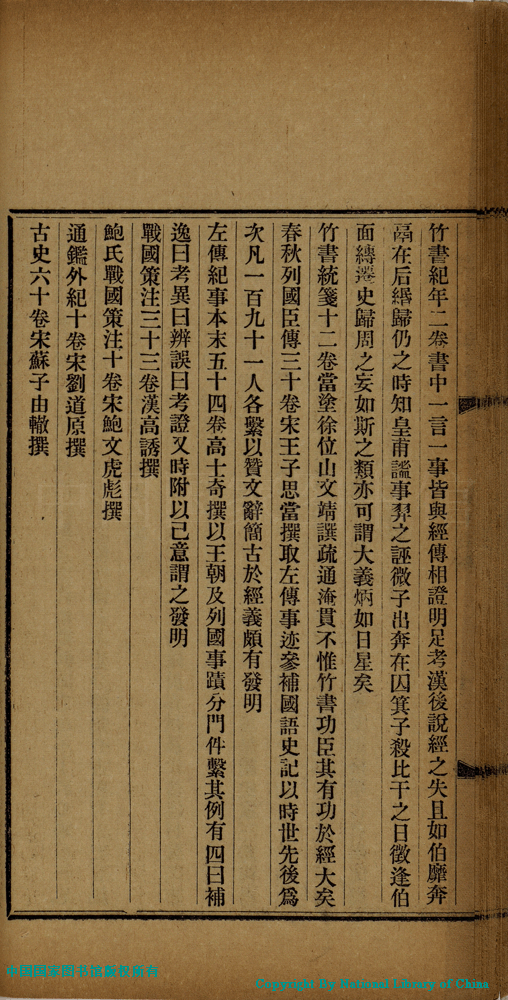 竹書紀年二卷書中一言一事皆與經傳相證明足考漢後說經之失且如伯靡奔
鬲在后緡歸仍之時知皇甫謐事羿之誣微子出奔在囚箕子殺比干之日徵逢伯
面縛遷史歸周之妄如斯之類亦可謂大義炳如日星矣
竹書統箋十二卷當塗徐位山文靖譔疏通淹貫不惟竹書功臣其有功於經大矣
春秋列國臣傳三十卷宋王子思當撰取左傳事迹參補國語史記以時世先後爲
次凡一百九十一人各繫以贊文辭簡古於經義頗有發明
左傳紀事本末五十四卷高士奇撰以王朝及列國事蹟分門件繫其例有四曰補
逸曰考異曰辨誤曰考證又時附以己意謂之發明
戰國策注三十三卷漢高誘撰
鮑氏戰國策注十卷宋鮑文虎彪撰
通鑑外紀十卷宋劉道原撰
古史六十卷宋蘇子由轍撰
中国国家图书馆版权所有
Copyright by National Library of China